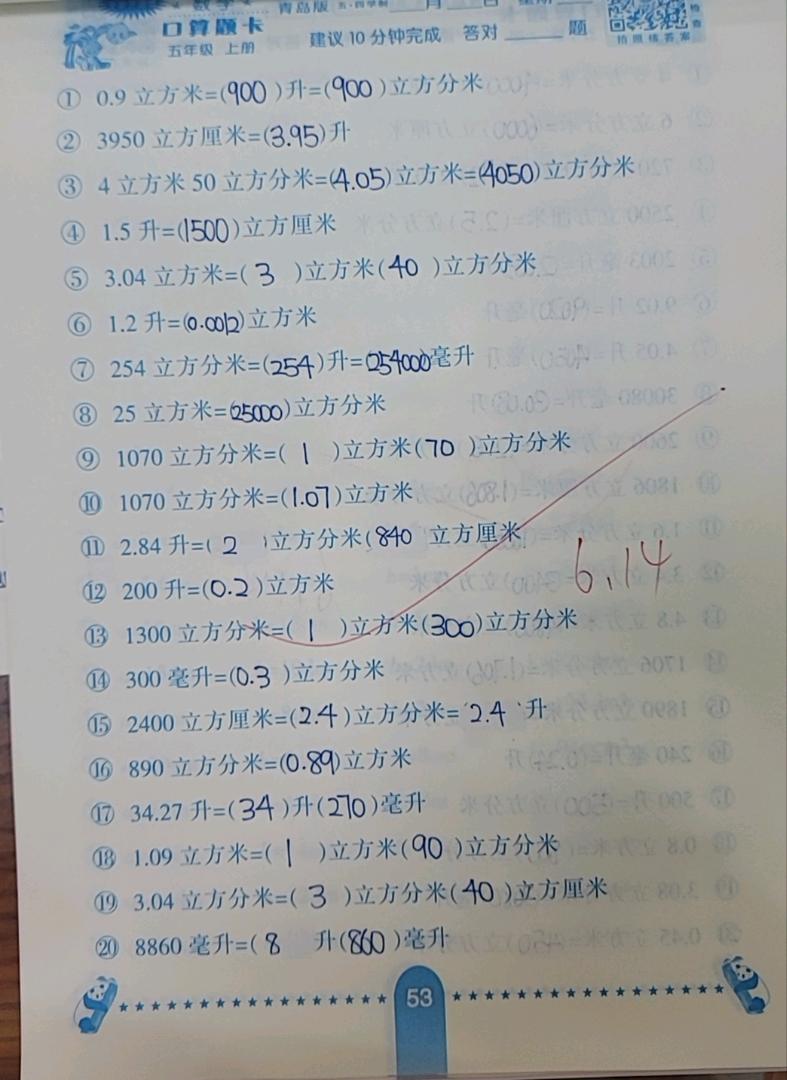 数学 青岛版 五·四学制 月 日
口算题卡
五年级 上册 建议10分钟完成 答对______题
拍照练答案
① 0.9立方米=(900)升=(900)立方分米
② 3950立方厘米=(3.95)升
③ 4立方米50立方分米=(4.05)立方米=(4050)立方分米
④ 1.5升=(1500)立方厘米
⑤ 3.04立方米=(3)立方米(40)立方分米
⑥ 1.2升=(0.0012)立方米
⑦ 254立方分米=(254)升=(254000)毫升
⑧ 25立方米=(25000)立方分米
⑨ 1070立方分米=(1)立方米(70)立方分米
⑩ 1070立方分米=(1.07)立方米
⑪ 2.84升=(2)立方分米(840 立方厘米
⑫ 200升=(0.2)立方米
6.14
⑬ 1300立方分米=(1)立方米(300)立方分米
⑭ 300毫升=(0.3)立方分米
⑮ 2400立方厘米=(2.4)立方分米=(2.4)升
⑯ 890立方分米=(0.89)立方米
⑰ 34.27升=(34)升(270)毫升
⑱ 1.09立方米=(1)立方米(90)立方分米
⑲ 3.04立方分米=(3)立方分米(40)立方厘米
⑳ 8860毫升=(8 升(860)毫升
53